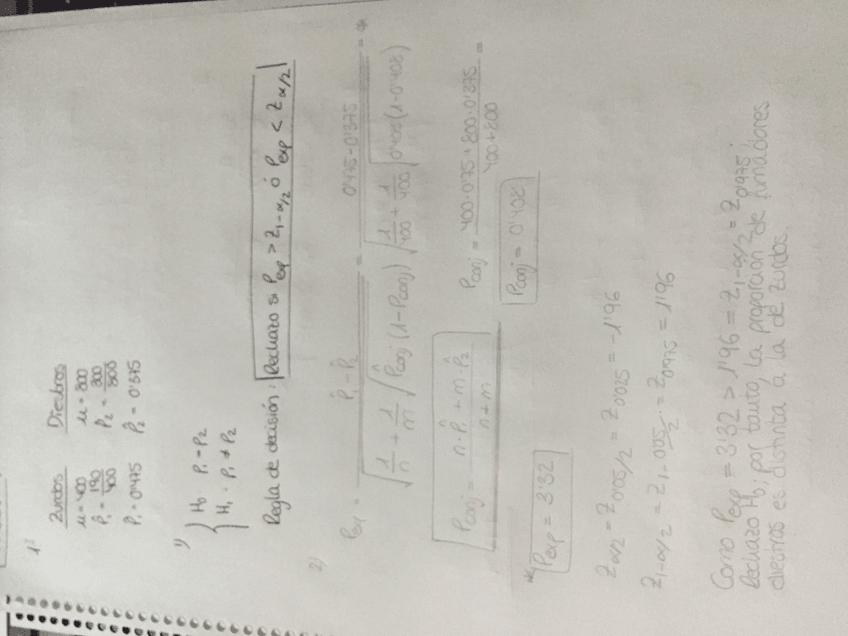 1º
Zurdos Diestros
n=400 n=800
p̂₁ = 190/400 p̂₂ = 300/800
p̂₁ = 0'475 p̂₂ = 0'375
1)
{ H₀ P₁ = P₂
H₁ : P₁ ≠ P₂
Regla de decisión: Rechazo si Pexp > Z₁₋α/₂ ó Pexp < Zα/₂
2)
Pexp = (p̂₁ - p̂₂) / (√(1/n + 1/m) √(P̂conj (1-P̂conj))) = (0'475 - 0'375) / (√(1/400 + 1/400) √(0'408(1-0'408))) = *
Pconj = (n·p̂₁ + m·p̂₂) / (n+m) Pconj = (400·075 + 800·0'375) / (400+800) =
Pconj = 0'408
* Pexp = 3'32
Zα/₂ = Z₀'₀₅/₂ = Z₀'₀₂₅ = -1'96
Z₁₋α/₂ = Z₁₋₀'₀₅/₂ = Z₀'₉₇₅ = 1'96
Como Pexp = 3'32 > 1'96 = Z₁₋α/₂ = Z₀'₉₇₅;
Rechazo H₀; por tanto, la proporción de fumadores
diestros es distinta a la de zurdos.